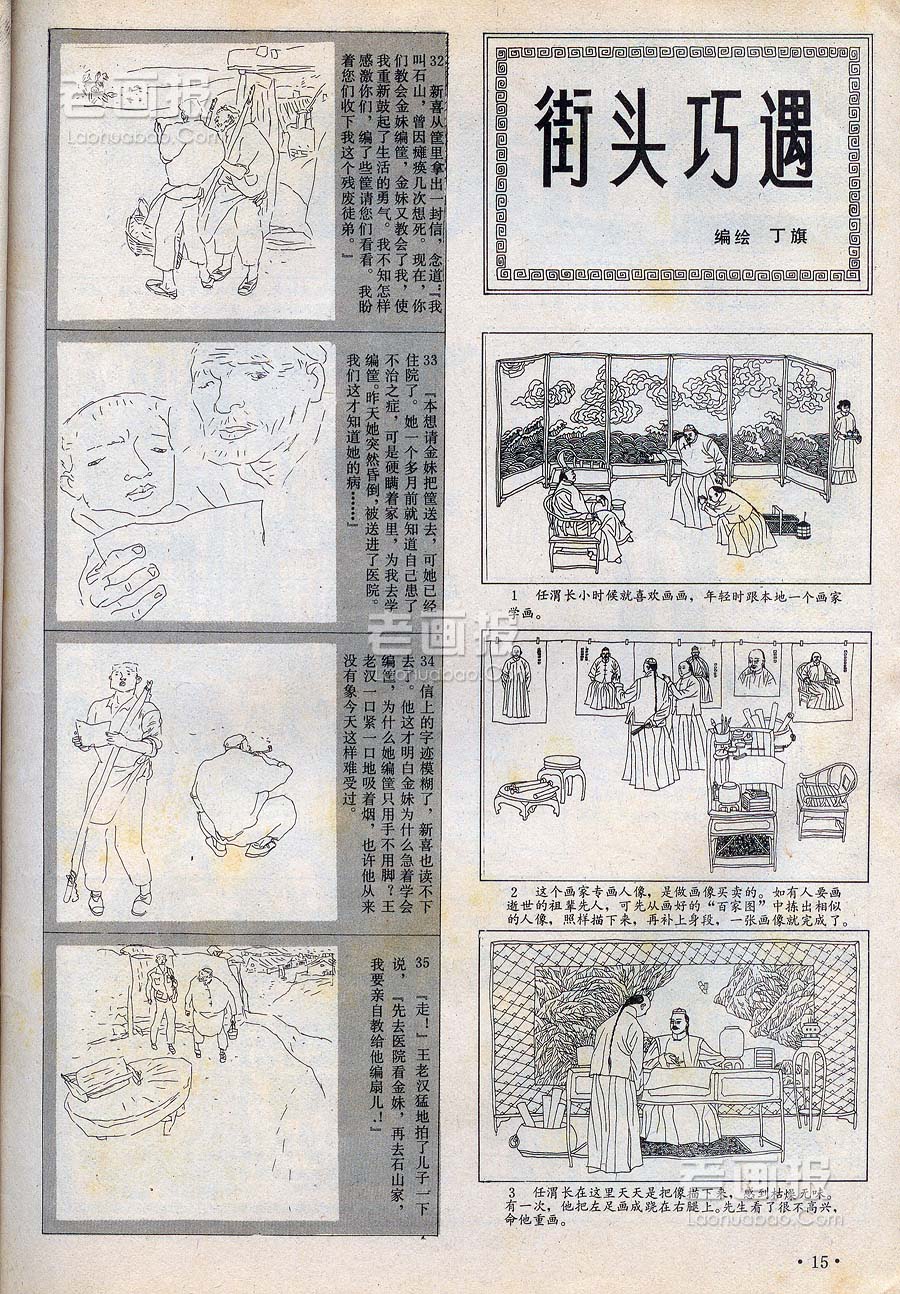 32　新喜从筐里拿出一封信，念道：『我
叫石山，曾因瘫痪几次想死。现在，你
们教会金妹编筐，金妹又教会了我，使
我重新鼓起了生活的勇气。我不知怎样
感激你们，编了些筐请您们看看。我盼
着您们收下我这个残废徒弟。』
33　『本想请金妹把筐送去，可她已经
住院了。她一个多月前就知道自己患了
不治之症，可是硬瞒着家里，为我去学
编筐。昨天她突然昏倒，被送进了医院。
我们这才知道她的病……』
34　信上的字迹模糊了，新喜也读不下
去了。他这才明白金妹为什么急着学会
编筐，为什么她编筐只用手不用脚？王
老汉一口紧一口地吸着烟，也许他从来
没有象今天这样难受过。
35　『走！』王老汉猛地拍了儿子一下
说，『先去医院看金妹，再去石山家，
我要亲自教给他编扇儿！』
街头巧遇
编绘 丁旗
1　任渭长小时候就喜欢画画，年轻时跟本地一个画家
学画。
2　这个画家专画人像，是做画像买卖的。如有人要画
逝世的祖辈先人，可先从画好的“百家图”中拣出相似
的人像，照样描下来，再补上身段，一张画像就完成了。
3　任渭长在这里天天是把像描下来，感到枯燥无味。
有一次，他把左足画成跷在右腿上。先生看了很不高兴，
命他重画。
·15·
老画报
Laohuabao.Com
老画报
Laohuabao.Com
老画报
Laohuabao.Com